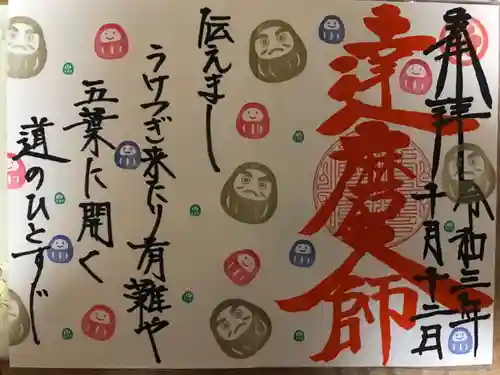 奉拝 令和三年
十月十三日
達磨大師
伝えまし
うけつぎ来たり有難や
五葉に開く
道のひとすじ